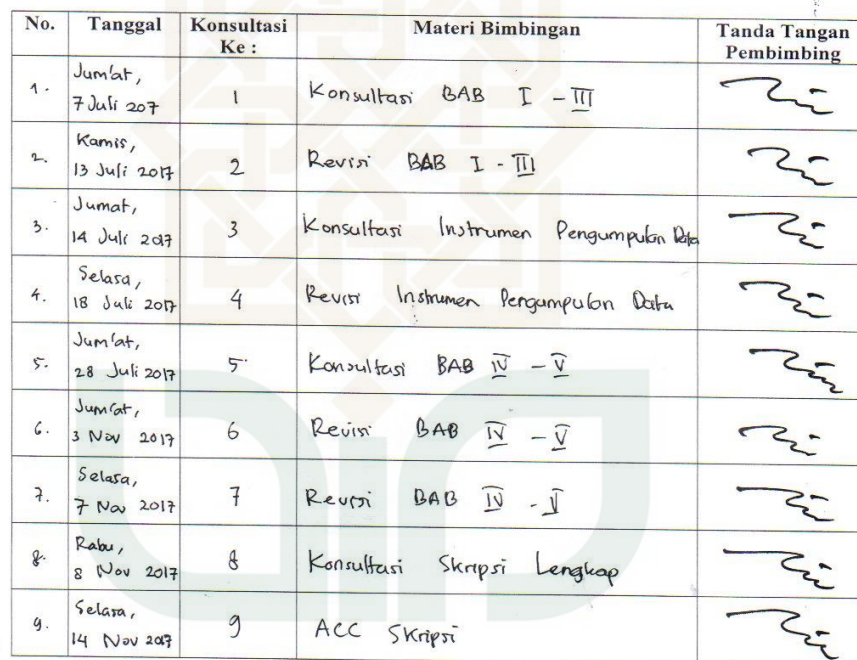 No. Tanggal Konsultasi Ke : Materi Bimbingan Tanda Tangan Pembimbing
1. Jum'at, 7 Juli 207 1 Konsultasi BAB I - III
2. Kamis, 13 Juli 2017 2 Revisi BAB I - III
3. Jumat, 14 Juli 2017 3 Konsultasi Instrumen Pengumpulan Data
4. Selasa, 18 Juli 2017 4 Revisi Instrumen Pengumpulan Data
5. Jum'at, 28 Juli 2017 5 Konsultasi BAB IV - V
6. Jum'at, 3 Nov 2017 6 Revisi BAB IV - V
7. Selasa, 7 Nov 2017 7 Revisi BAB IV - V
8. Rabu, 8 Nov 2017 8 Konsultasi Skripsi Lengkap
9. Selasa, 14 Nov 2017 9 ACC Skripsi